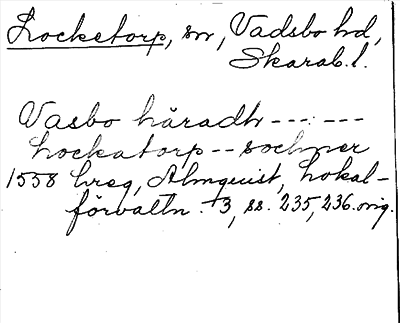 Locketorp, sn, Vadsbo hd,
Skarab. l.
Vasbo häradh --- --- ---
Lockatorp -- sochner
1558 Lreg, Almquist, Lokal-
förvaltn. 3, ss. 235, 236. orig.